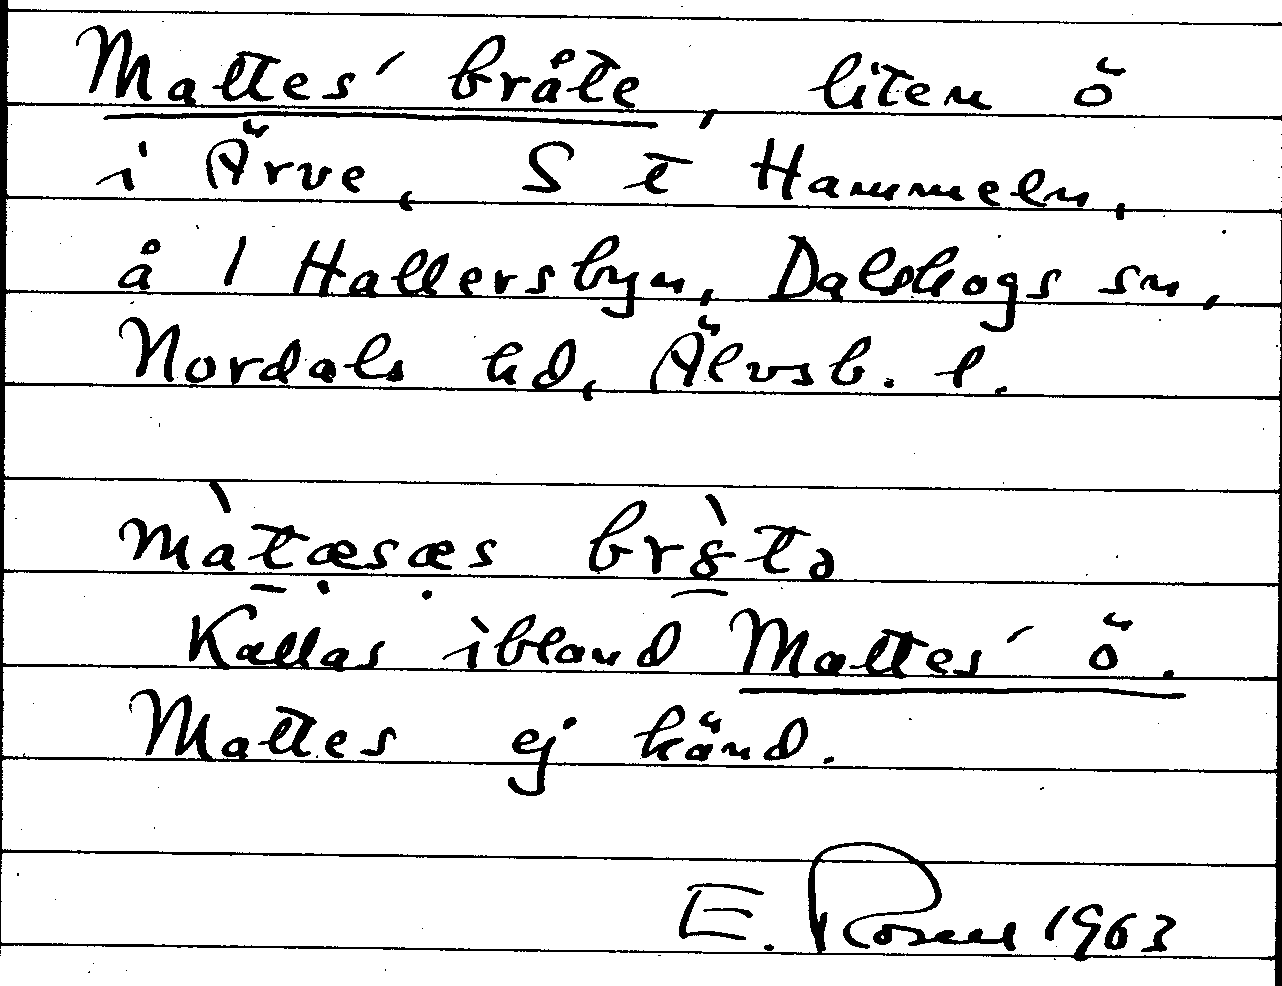 Mattes' bråte, liten ö
i Ärve, S t Hammeln,
å 1 Hallersbyn, Dalskogs sn,
Nordals hd, Älvsb. l.
màtæsæs br&#x300;ȣtə
Kallas ibland Mattes' ö.
Mattes ej känd.
E. Rosell 1963